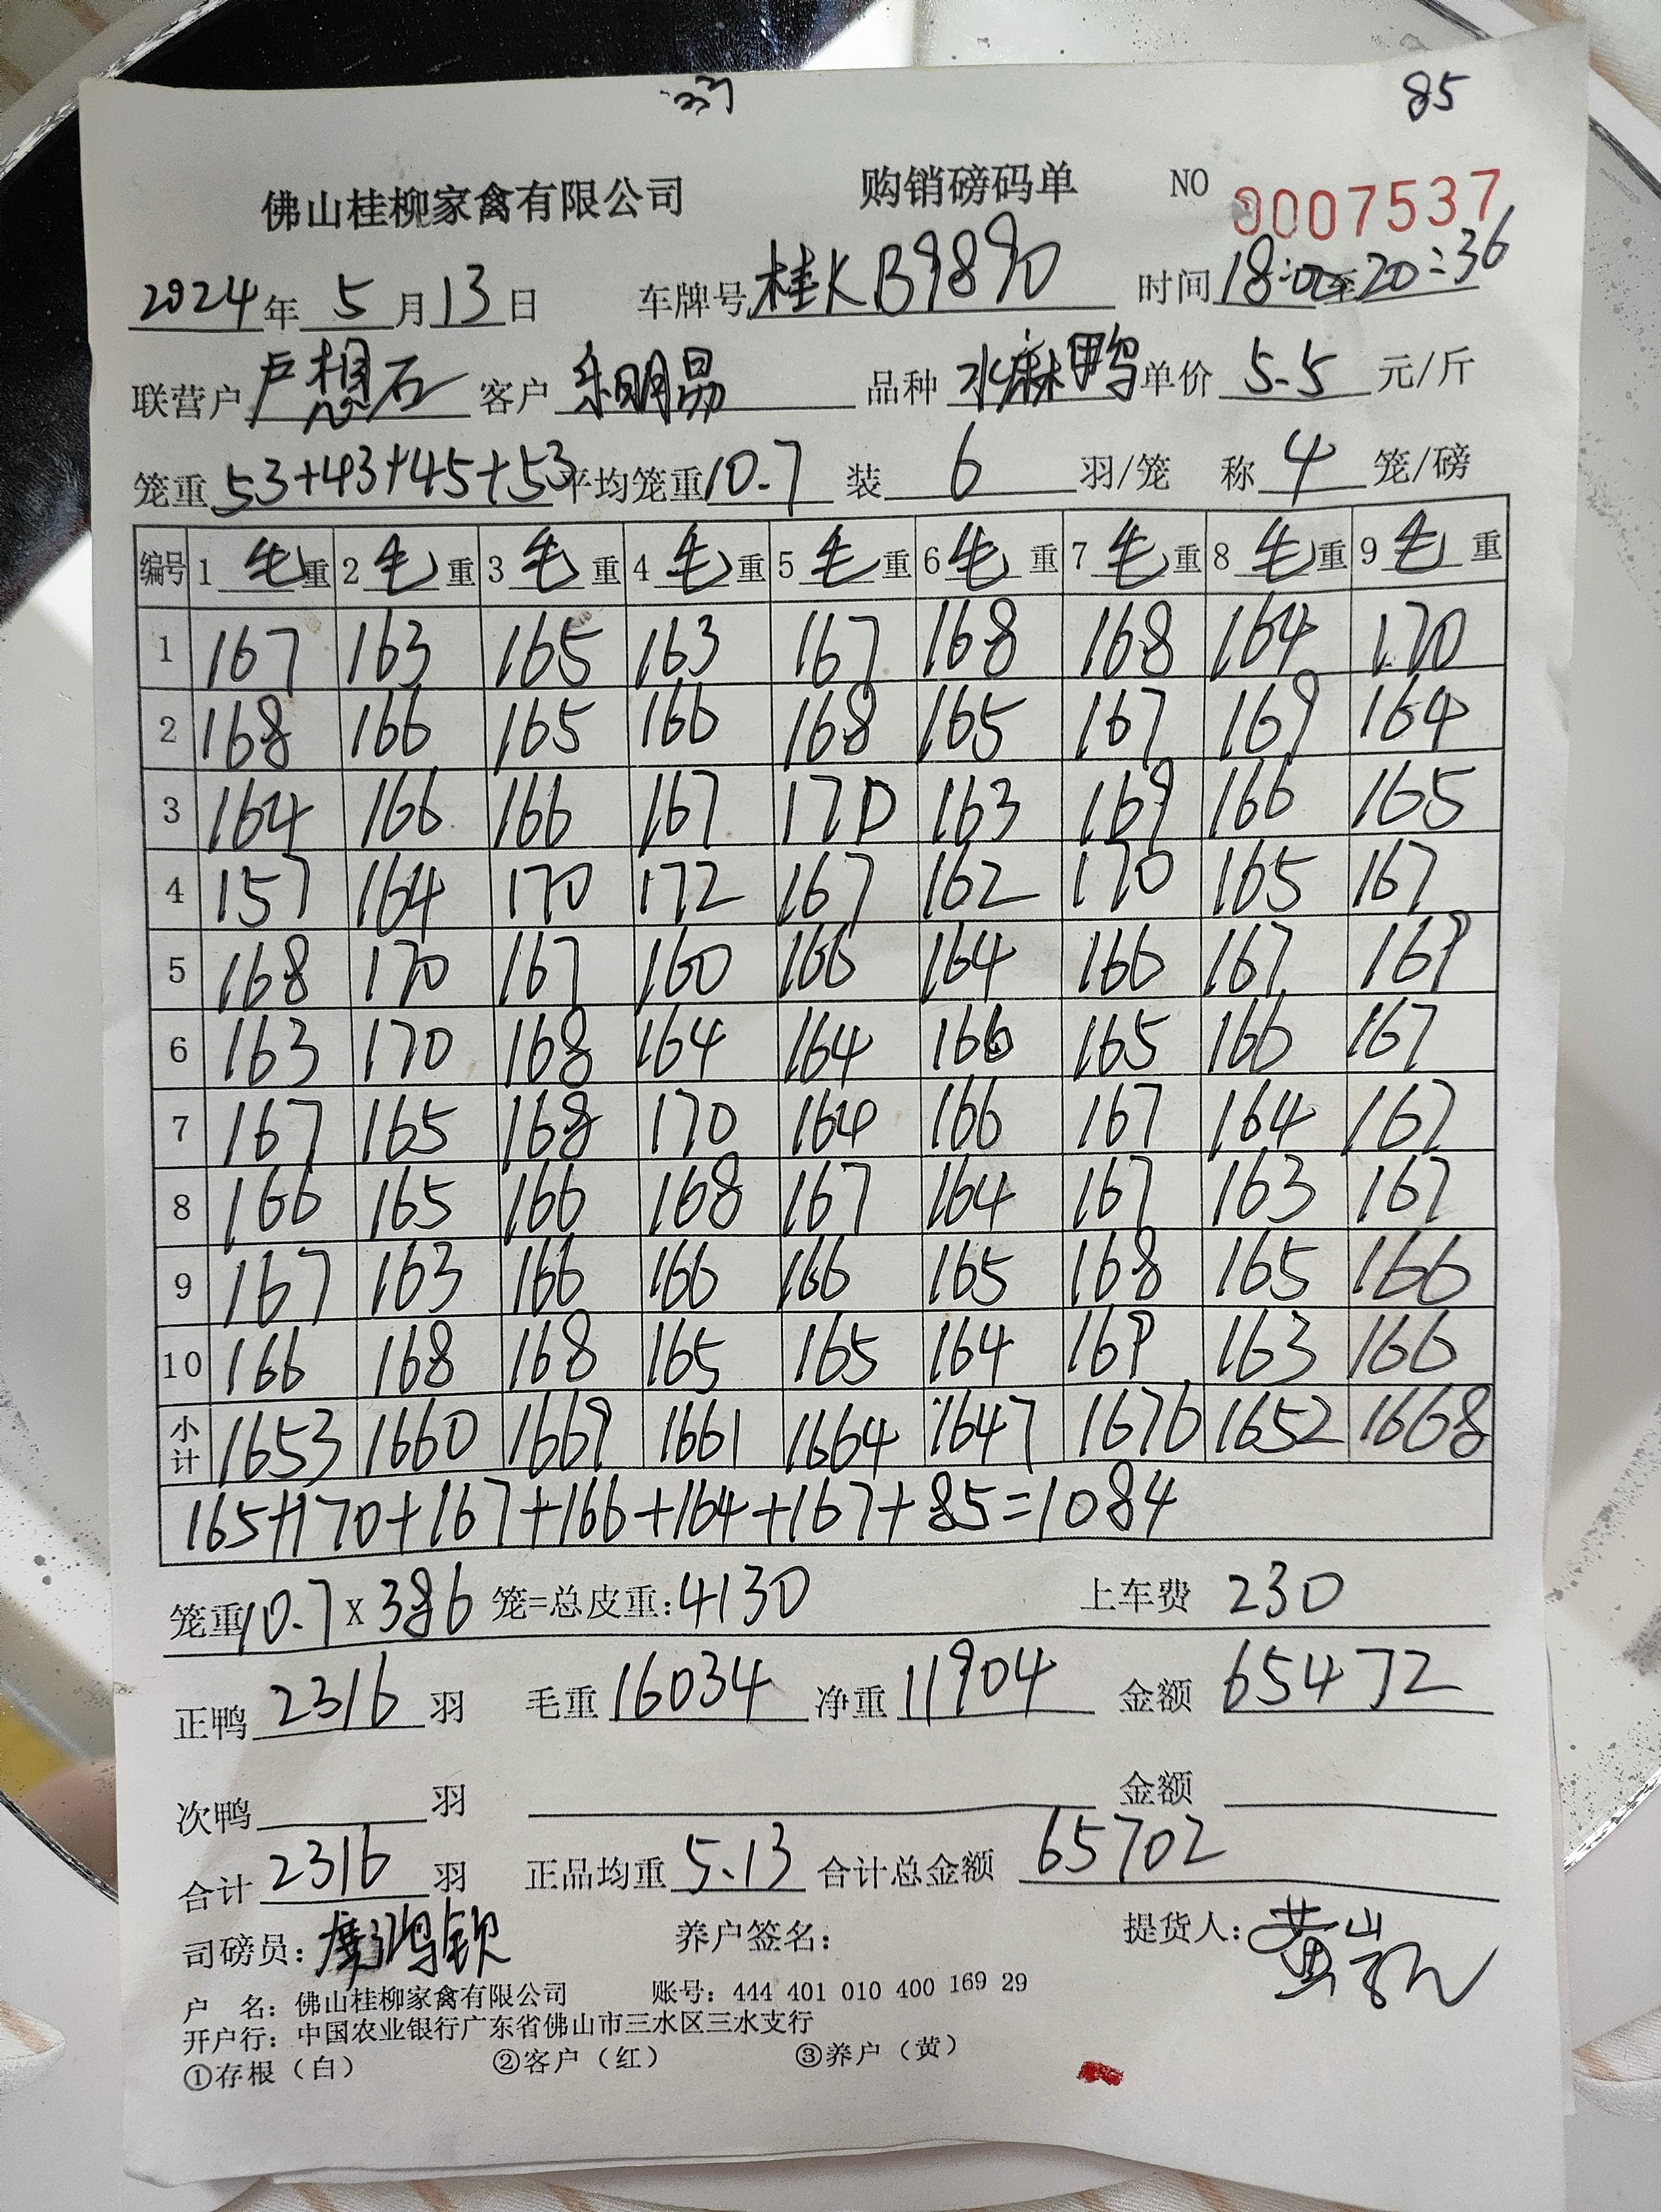 85
佛山桂柳家禽有限公司 购销磅码单 NO 0007537
2024年5月13日 车牌号桂KB9890 时间18:00至20:36
联营户卢想石 客户朱明昜 品种水麻鸭 单价5.5元/斤
笼重53+43+45+53平均笼重10.7 装6羽/笼 称4笼/磅
编号 1毛重 2毛重 3毛重 4毛重 5毛重 6毛重 7毛重 8毛重 9毛重
1 167 163 165 163 167 168 168 164 170
2 168 166 165 166 168 165 167 169 164
3 164 166 166 167 170 163 169 166 165
4 157 164 170 172 167 162 170 165 167
5 168 170 167 160 166 164 166 167 169
6 163 170 168 164 164 166 165 166 167
7 167 165 168 170 164 166 167 164 167
8 166 165 166 168 167 164 167 163 167
9 167 163 166 166 166 165 168 165 166
10 166 168 168 165 165 164 169 163 166
小计 1653 1660 1669 1661 1664 1647 1676 1652 1668
165+170+167+166+164+167+85=1084
笼重10.7x386笼=总皮重:4130 上车费230
正鸭2316羽 毛重16034 净重11904 金额65472
次鸭 羽 金额
合计2316羽 正品均重5.13 合计总金额65702
司磅员: 鸿钦 养户签名: 提货人: 黄
户 名: 佛山桂柳家禽有限公司 账号: 444 401 010 400 169 29
开户行: 中国农业银行广东省佛山市三水区三水支行
①存根（白） ②客户（红） ③养户（黄）